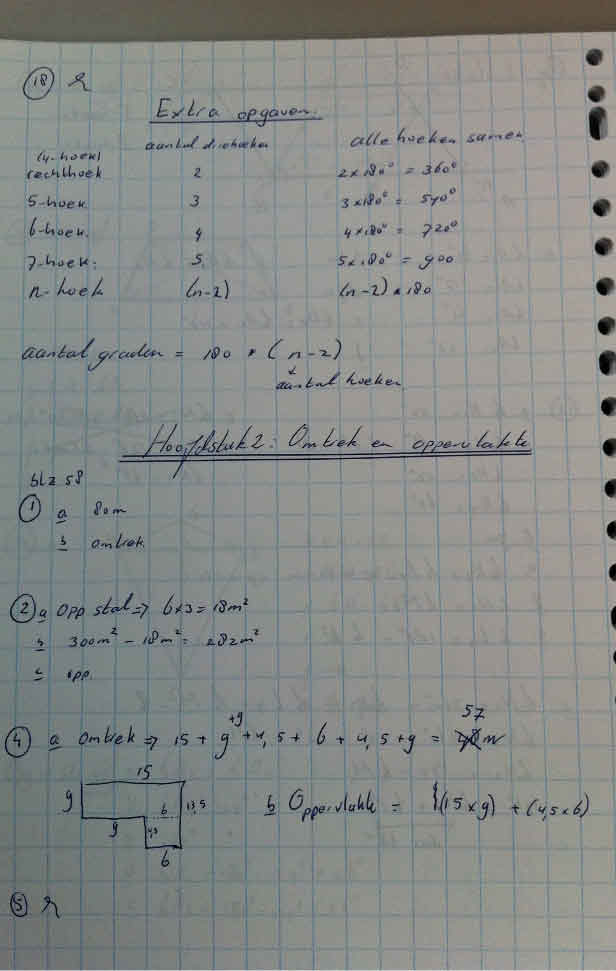 18 r
Extra opgaven.
aantal driehoeken alle hoeken samen
(4-hoek)
rechthoek 2 2 x 180° = 360°
5-hoek 3 3 x 180° = 540°
6-hoek. 4 4 x 180° = 720°
7-hoek. 5. 5 x 180° = 900
n-hoek (n-2) (n-2) * 180
aantal graden = 180 * (n-2)
aantal hoeken
Hoofdstuk 2: Omtrek en oppervlakte
blz 58
1 a 80m
b omtrek.
2 a opp stal => 6x3 = 18m²
b 300m² - 18m² = 282m²
c opp.
57
+9
4 a omtrek => 15 + 9 + 4,5 + 6 + 4,5 + 9 = m
15
9 6 13,5
9 4,5
6
b Oppervlakte = (15 x 9) + (4,5 x 6)
5 r